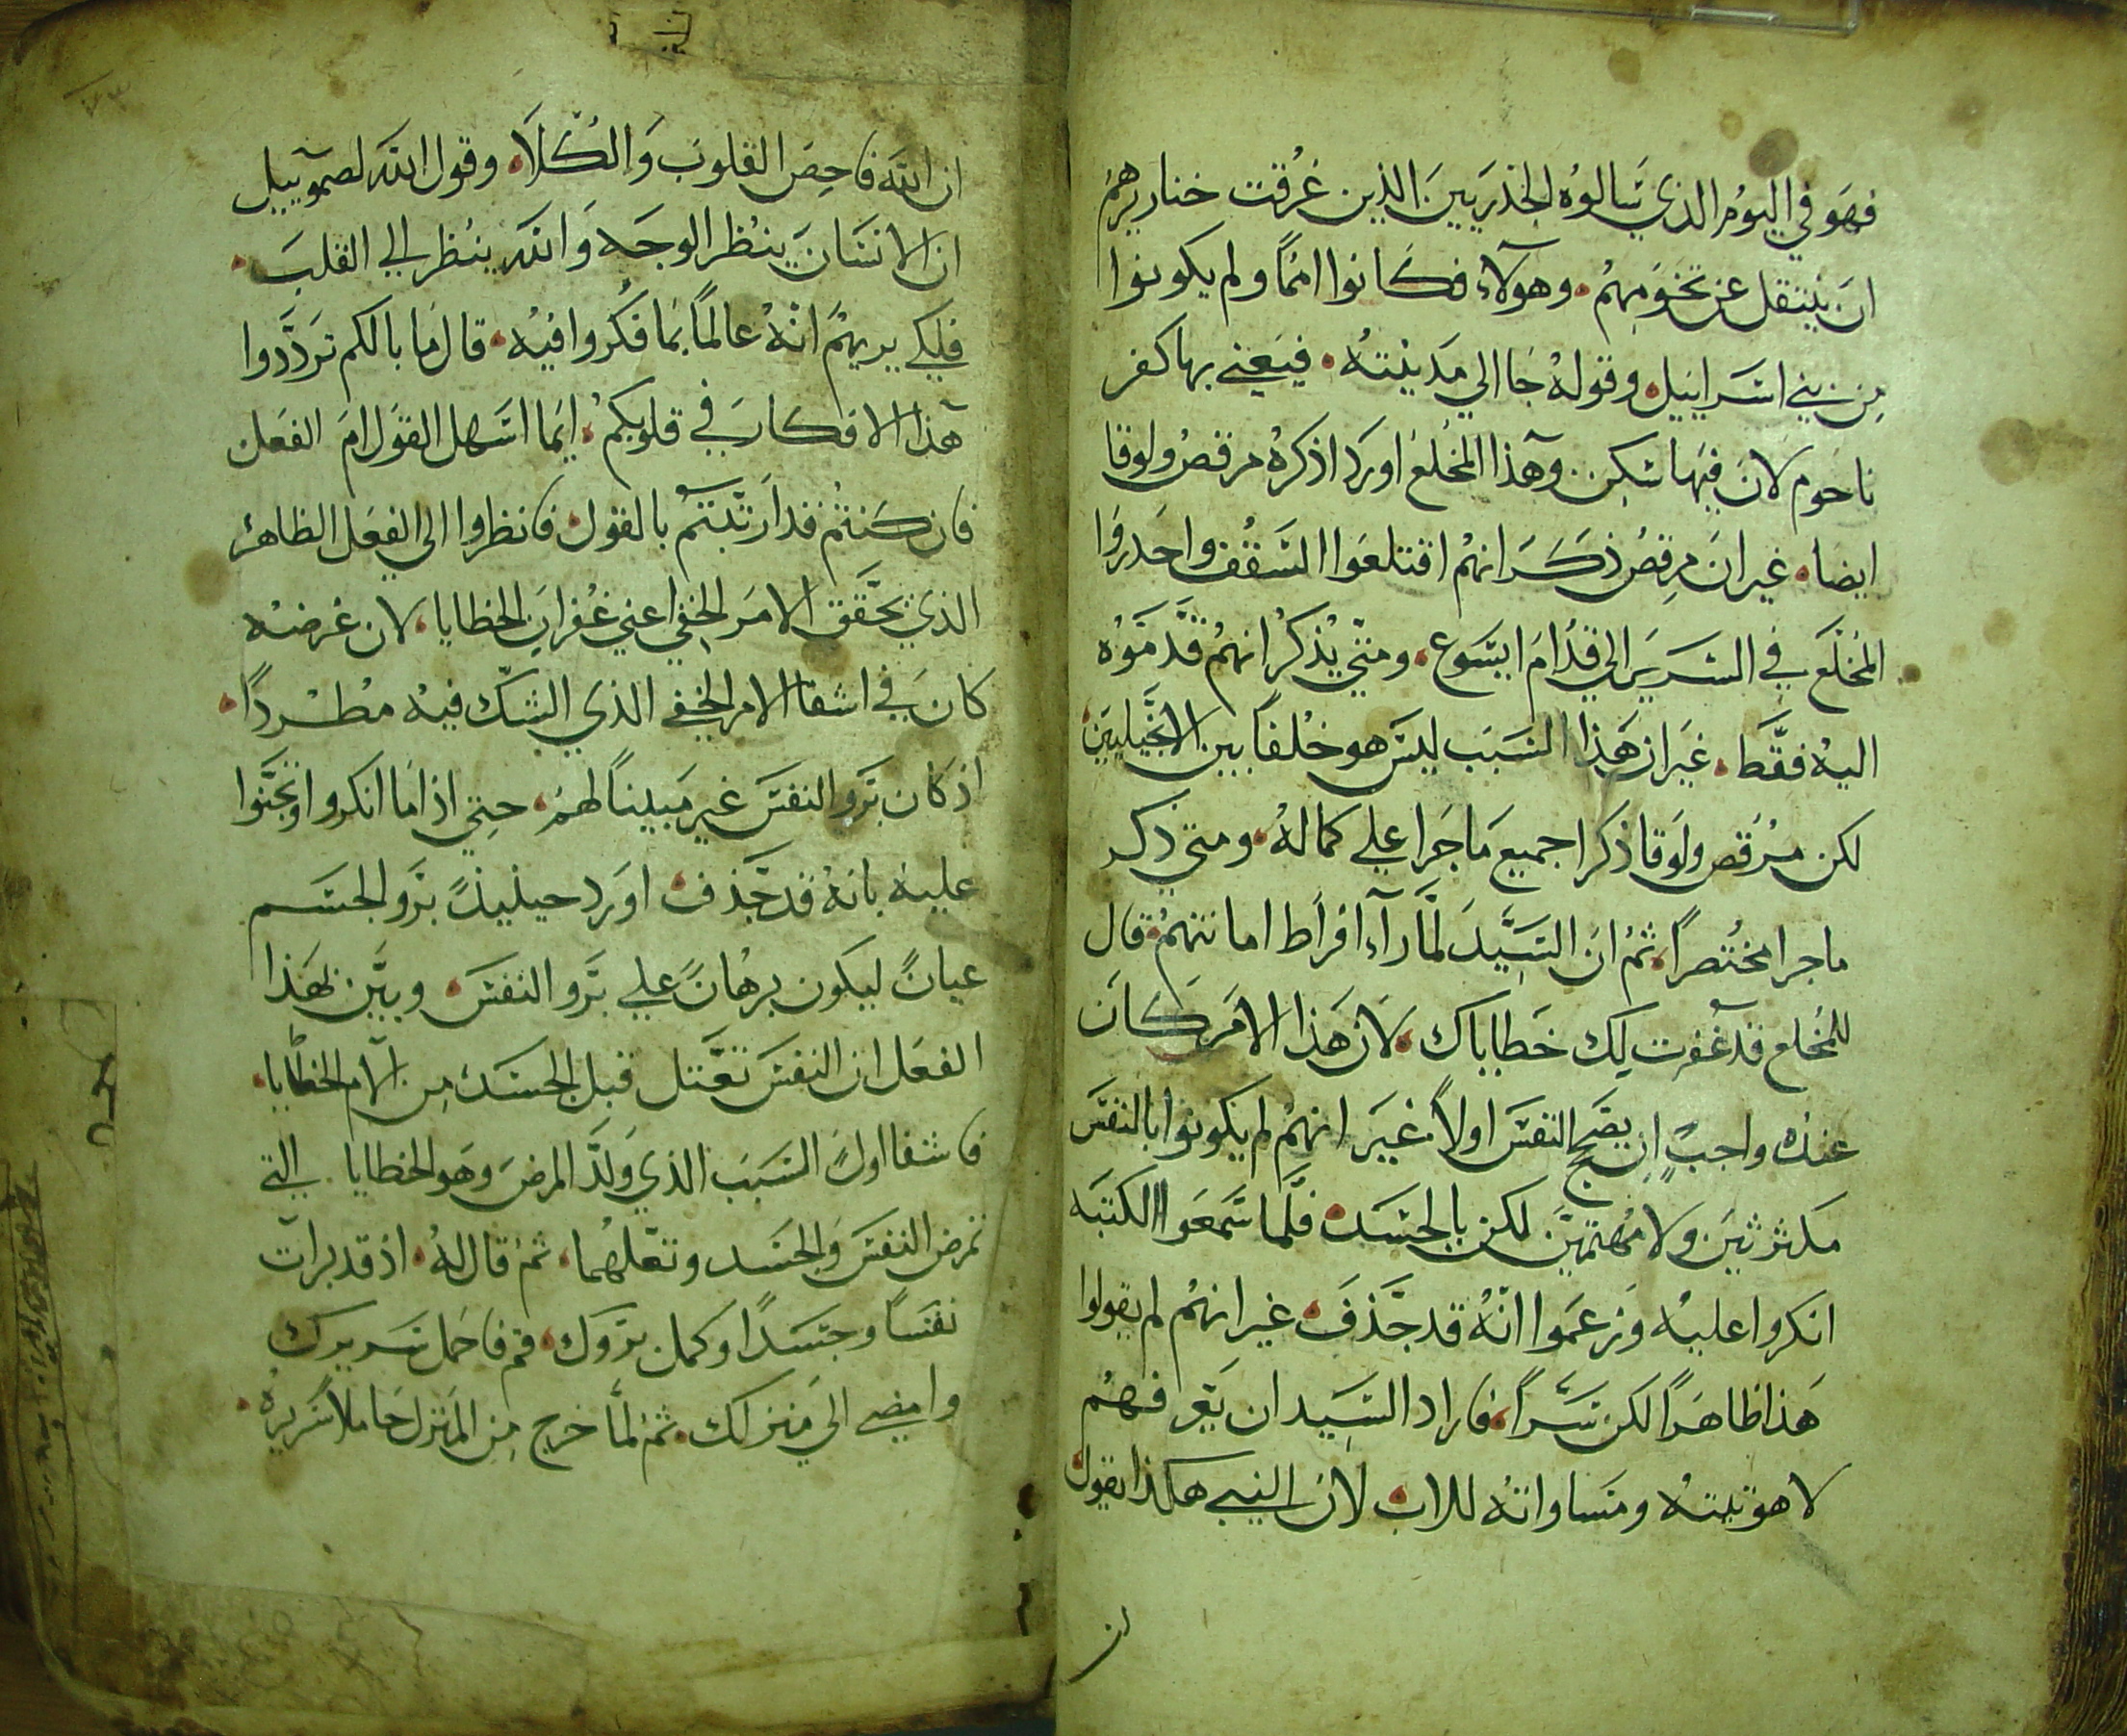 فهو في اليوم الذي سالوه الخذريين الذين غرقت خنازيرهم
ان ينتقل عن تخومهم. وهولاء فكانوا امماً ولم يكونوا
من بني اسراييل. وقوله جا الي مدينته. فيعني بها كفر
ناحوم لان فيها سكن. وهذا المخلع اورد اذكره مرقص ولوقا
ايضا. غير ان مرقص ذكر انهم اقتلعوا السقف واحدروا
المخلع في السرير الي قدام ايسوع. ومتي يذكر انهم قدموه
اليه فقط. غير ان هذا السبب ليس هو خلفاً بين الانجيليين
لكن مرقص ولوقا ذكرا جميع ما جرا علي كماله. ومتي ذكر
ما جرا مختصراً. ثم ان السيد لما راء افراط امانتهم. قال
للمخلع قد غفرت لك خطاياك. لان هذا الامر كان
عنده واجب ان يصح النفس اولاً. غير انهم لم يكونوا بالنفس
مكترثين ولا مهتمين لكن بالجسد. فلما سمعوا الكتبه
انكروا عليه وزعموا انه قد جذف. غير انهم لم يقولوا
هذا ظاهراً لكن سراً. فاراد السيد ان يعرفهم
لاهوتيته ومساواته للاب. لان النبي هكذا يقول
ان
ان الله فاحص القلوب والكلا. وقول الله لصموييل
ان الانسان ينظر الوجه والله ينظر الي القلب.
فلكي يريهم انه عالماً بما فكروا فيه. قال ما بالكم ترددوا
هذا الافكار في قلوبكم. ايما اسهل القول ام الفعل
فان كنتم قد ارتبتم بالقول. فانظروا الي الفعل الظاهر
الذي يحقق الامر الخفي اعني غفران الخطايا. لان غرضه
كان في اشفا الامر الخفي الذي الشك فيه مطرداً.
اذ كان برو النفس غير مبيناً لهم. حتي اذا ما انكروا وتجنوا
عليه بانه قد جذف. اورد حينيذً برو الجسم
عيانً ليكون برهانً علي برو النفس. وبين بهذا
الفعل ان النفس تعتل قبل الجسد. من الام الخطايا.
فاشفا اولً السبب الذي ولد المرض وهو الخطايا. التي
تمرض النفس والجسد وتعلهما. ثم قال له. اذ قد برات
نفساً وجسداً وكمل بروك. قم فاحمل سريرك
وامضي الي منزلك. ثم لما خرج من المنزل حاملا سريره.